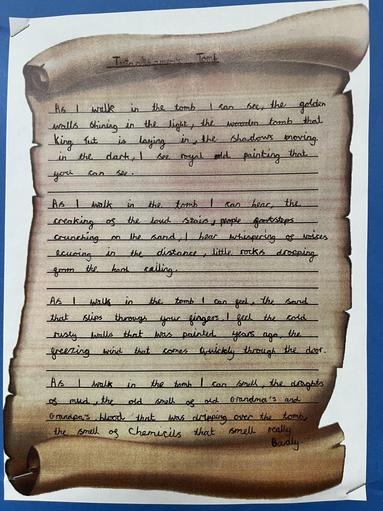 Tutankhamun's Tomb
As I walk in the tomb I can see, the golden
walls shining in the light, the wooden tomb that
King Tut is laying in, the shadows moving
in the dark, I see royal old painting that
you can see.
As I walk in the tomb I can hear, the
creaking of the loud stairs, people footsteps
crunching on the sand, I hear whispering of voices
ecuring in the distance, little rocks dropping
from the hard ceiling.
As I walk in the tomb I can feel, the sand
that slips through your fingers. I feel the cold
rusty walls that was painted years ago, the
freezing wind that comes quickly through the door.
As I walk in the tomb I can smell, the draughts
of mud, the old smell of old Grandma's and
Grandpa's blood that was dripping over the tomb,
the smell of Chemicils that smell really
Badly